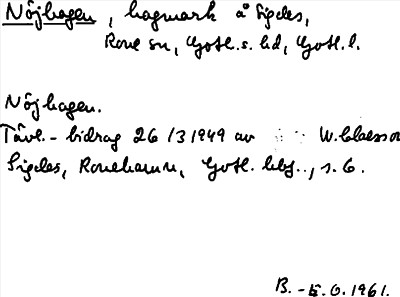 Nöjhagen, hagmark å Sigdes,
Rone sn, Gotl. s. hd, Gotl. l.
Nöjhagen.
Tävl.-bidrag 26/3 1949 av W. Claesson
Sigdes, Ronehamn, Gotl. hbg., s. 6.
B. - 1961.